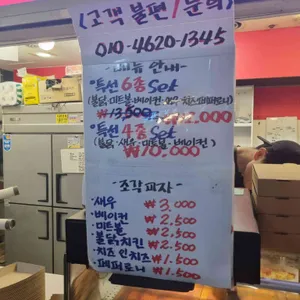 (고객 불편/문의)
010-4620-1345
-메뉴 안내-
·특선 6종 Set
(불닭·미트볼·베이컨·새우·치즈·페퍼로니)
₩13,500 ₩12,000
·특선 4종 Set
(불닭·새우·미트볼·베이컨)
₩10,000
-조각피자-
·새우 ₩3,000
·베이컨 ₩2,500
·미트볼 ₩2,500
·불닭치킨 ₩2,500
·치즈 인 치즈 ₩1,500
·페퍼로니 ₩1,500